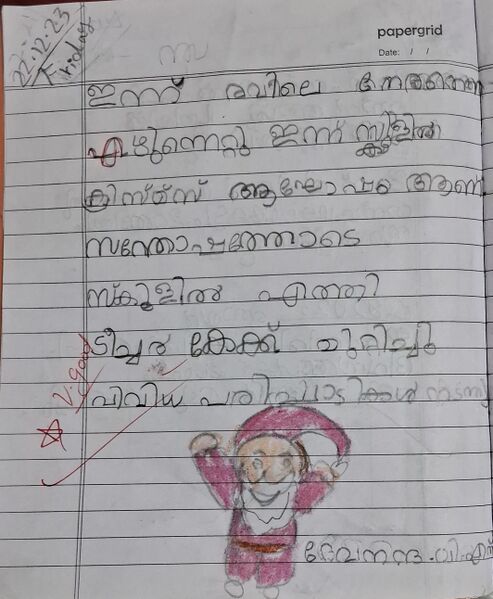 papergrid
Date: / /
22.12.23
Friday
ഇന്ന് രാവിലെ നേരത്തെ
എഴുന്നേറ്റു ഇന്ന് സ്കൂളിൽ
ക്രിസ്മസ് ആഘോഷം ആണ്
സന്തോഷത്തോടെ
സ്കൂളിൽ എത്തി
ടീച്ചർ കേക്ക് മുറിച്ചു
V.good
വിവിധ പരിപ്പാടികൾ നടന്നു
ദേവനന്ദ.വി.എസ്